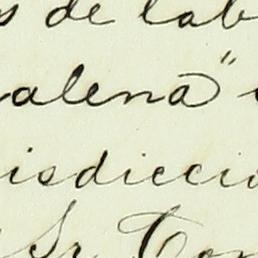 s de lab
alena"
isdiccio
Sr. Con